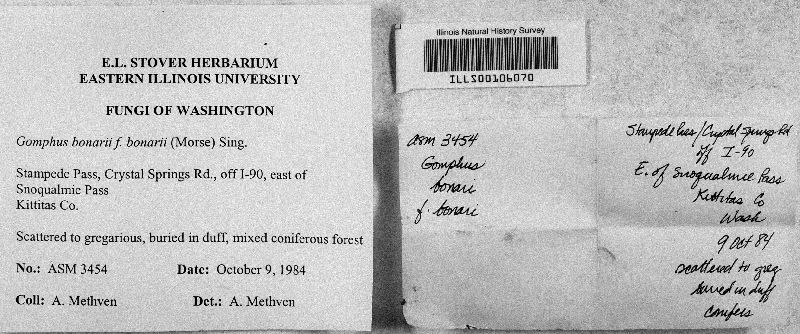 E.L. STOVER HERBARIUM
EASTERN ILLINOIS UNIVERSITY
FUNGI OF WASHINGTON
Gomphus bonarii f. bonarii (Morse) Sing.
Stampede Pass, Crystal Springs Rd., off I-90, east of
Snoqualmic Pass
Kittitas Co.
Scattered to gregarious, buried in duff, mixed coniferous forest
No.: ASM 3454 Date: October 9, 1984
Coll: A. Methven Det.: A. Methven
Illinois Natural History Survey
ILLS00106070
ASM 3454
Gomphus
bonari
f. bonari
Stampede Pass/Crystal Springs Rd
off I-90
E. of Snoqualmie Pass
Kittitas Co
Wash
9 Oct 84
scattered to greg
buried in duff
conifers